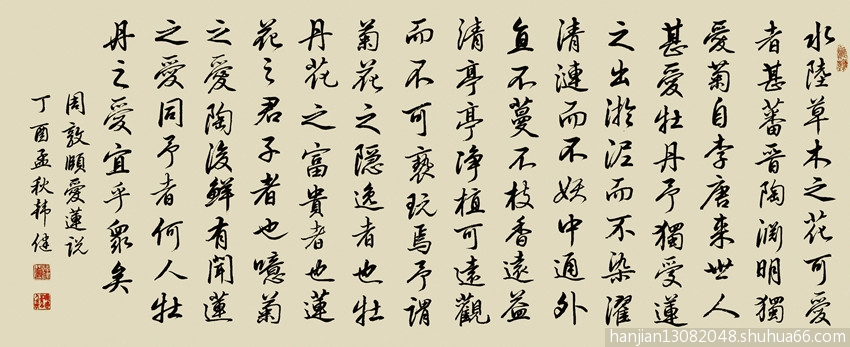 水陸草木之花可愛
者甚蕃晉陶渊明獨
愛菊自李唐来世人
甚愛牡丹予獨愛蓮
之出淤泥而不染濯
清漣而不妖中通外
直不蔓不枝香遠益
清亭亭净植可遠觀
而不可褻玩焉予謂
菊花之隱逸者也牡
丹花之富貴者也蓮
花之君子者也噫菊
之愛陶後鮮有聞蓮
之愛同予者何人牡
丹之愛宜乎衆矣
周敦頤愛蓮説
丁酉孟秋韩健
hanjian13082048.shuhua66.com